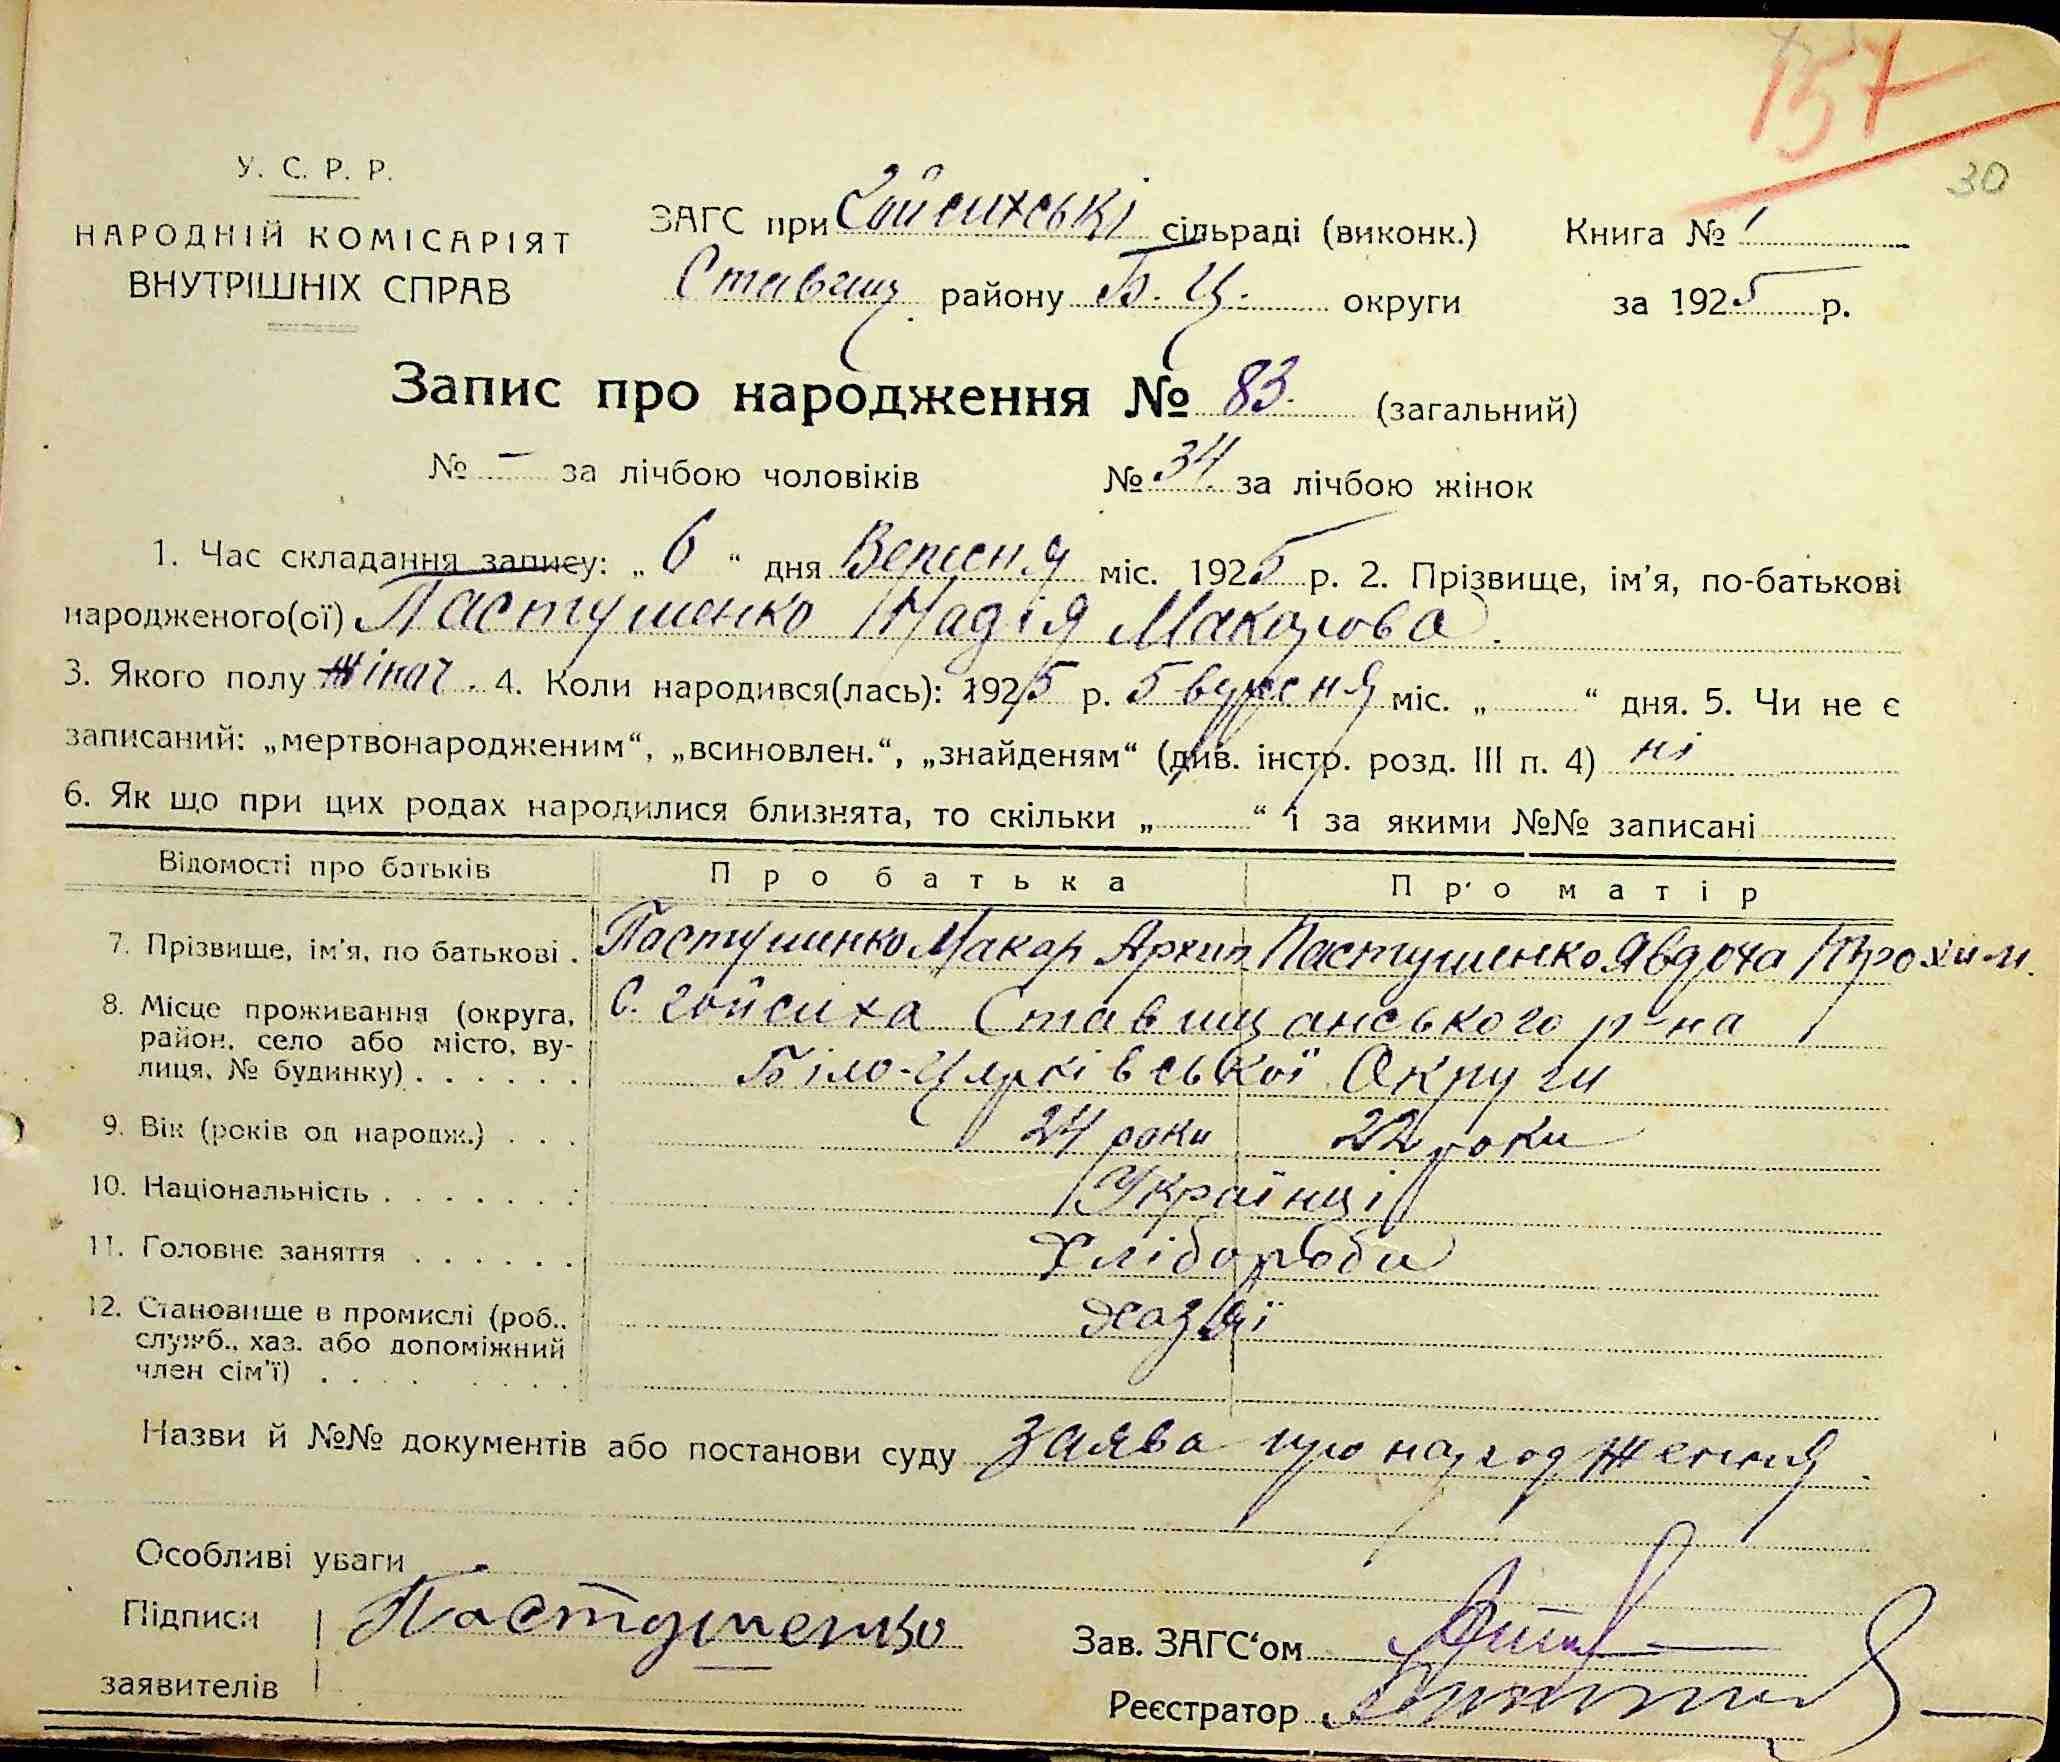 157
30
У. С. Р. Р.
НАРОДНІЙ КОМІСАРІЯТ
ВНУТРІШНІХ СПРАВ
ЗАГС при Гойсихські сільраді (виконк.) Книга № 1
Ставищ. району Б. Ц. округи за 1925 р.
Запис про народження № 83. (загальний)
№ – за лічбою чоловіків № 34. за лічбою жінок
1. Час складання запису: „ 6 “ дня Вересня міс. 1925 р. 2. Прізвище, ім’я, по-батькові
народженого(ої) Пастушенко Надія Макарова.
3. Якого полу жіноч. 4. Коли народився(лась): 1925 р. 5 вересня міс. „ “ дня. 5. Чи не є
записаний: „мертвонародженим“, „всиновлен.“, „знайденям“ (див. інстр. розд. III п. 4) ні
6. Як що при цих родах народилися близнята, то скільки „ “ і за якими №№ записані
Відомості про батьків Про батька Про матір
7. Прізвище, ім’я, по батькові . Пастушенко Макар Архип. Пастушенко Явдоха Трохим.
8. Місце проживання (округа, район, село або місто, вулиця, № будинку) . . . . . . С. Гойсиха Ставищанського р-на
Біло-Церківської Округи
9. Вік (років од народж.) . . . 24 роки 22 роки
10. Національність . . . . . . . Українці
11. Головне заняття . . . . . . Хлібороби
12. Становище в промислі (роб., служб., хаз. або допоміжний член сім’ї) . . . . . . . . Хазяї
Назви й №№ документів або постанови суду заява про народження.
Особливі уваги
Підписи Пастушенко Зав. ЗАГС‘ом
заявителів Реєстратор